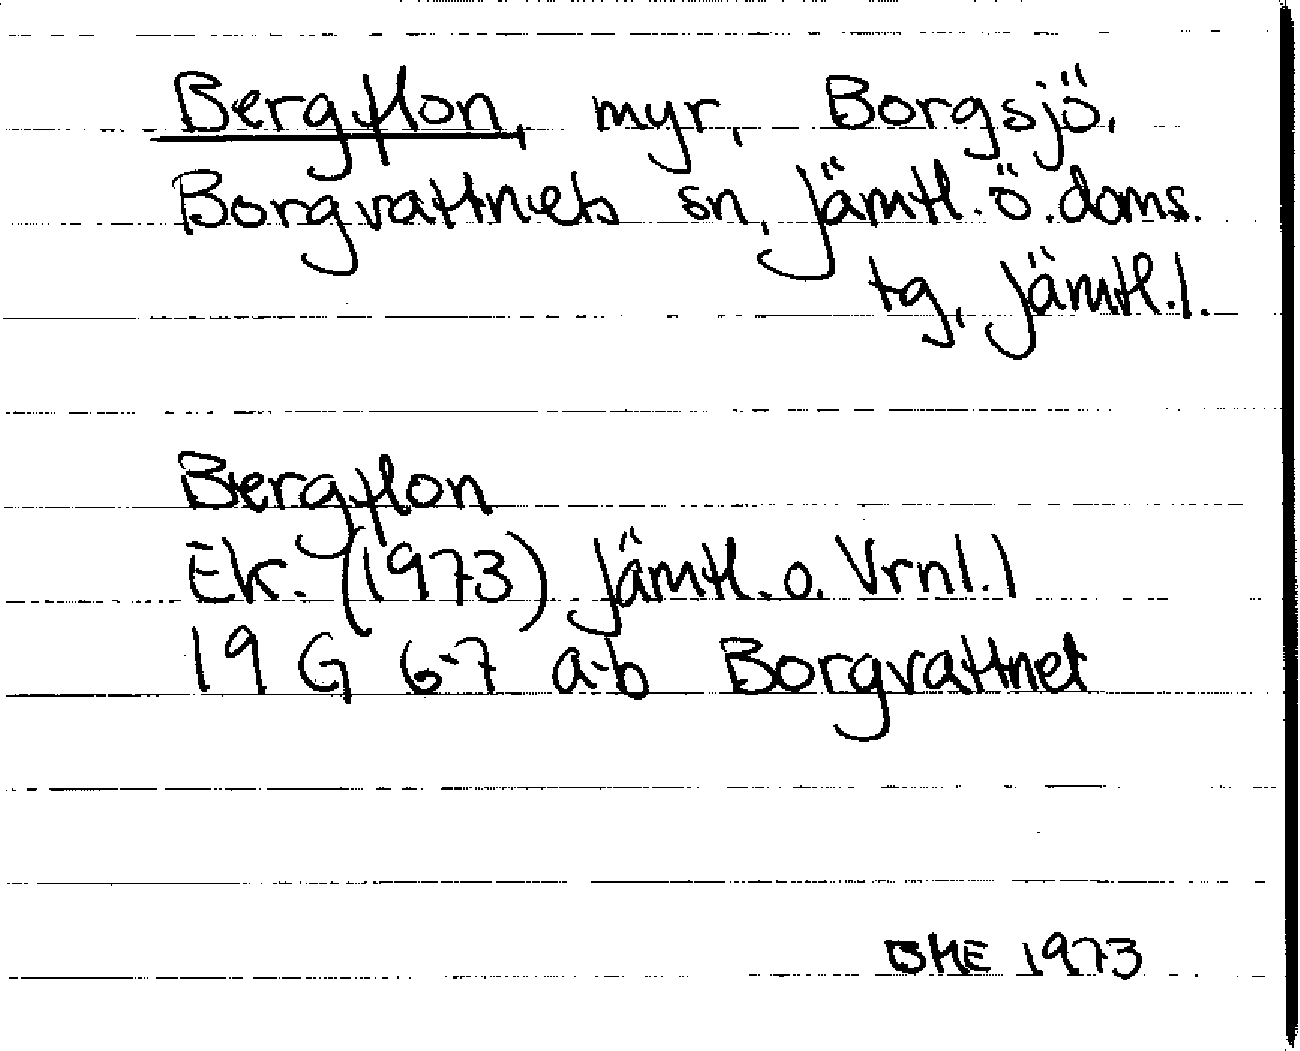 Bergflon, myr, Borgsjö,
Borgvattnets sn, Jämtl. ö. doms.
tg, Jämtl. l.
Bergflon
Ek. (1973) Jämtl. o. Vrnl. l
19 G 6-7 a-b Borgvattnet
BME 1973